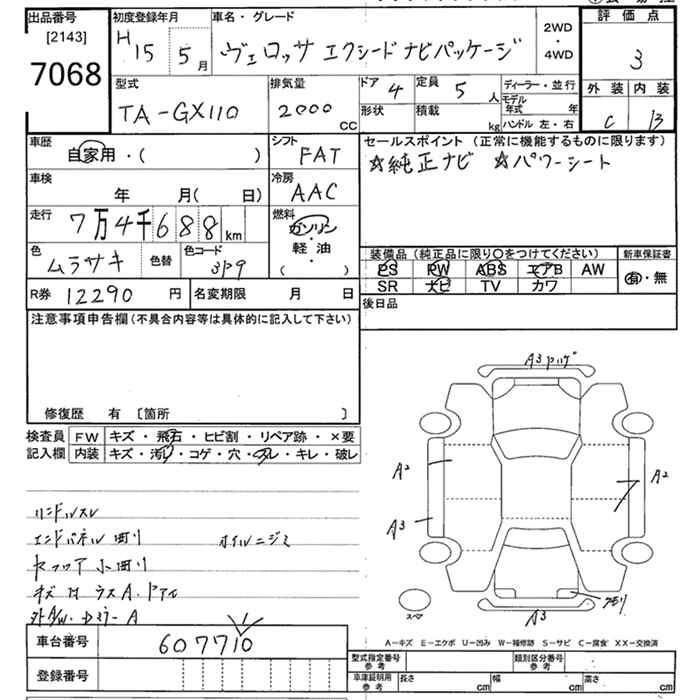 出品番号 初度登録年月 車名・グレード 評価点
[2143] H15 5月 ヴェロッサ エクシード ナビパッケージ 2WD・4WD 3
7068
型式 排気量 ドア 4 定員 5人 ディーラー・並行 外装 内装
TA-GX110 2000CC 形状 積載 kg モデル年式 年 C B
ハンドル 左・右
車歴 シフト セールスポイント（正常に機能するものに限ります）
自家用・( ) FAT ☆純正ナビ ☆パワーシート
車検 冷房
年 月( 日) AAC
走行 燃料
7万4千688km ガソリン・軽油
( )
色 色替 色コード 装備品（純正品に限り○をつけてください） 新車保証書
ムラサキ 3P9 PS PW ABS エアB AW 有・無
R券 12290円 名変期限 月 日 SR ナビ TV カワ
後日品
注意事項申告欄（不具合内容等は具体的に記入して下さい）
修復歴 有 〔箇所 〕
A3 ｷｽﾞ
検査員 FW キズ・飛石・ヒビ割・リペア跡・×要
記入欄 内装 キズ・汚レ・コゲ・穴・スレ・キレ・破レ
A2 A2
A3
ハンドルスレ
エンドパネル 凹リ オイルニジミ
小凹リ
A
スペア A3
車台番号 607710
A－キズ E－エクボ U－凹み W－補修跡 S－サビ C－腐食 XX－交換済
登録番号 型式指定番号 参考 類別区分番号 参考
車庫証明用 参考 長さ cm 幅 cm 高さ cm